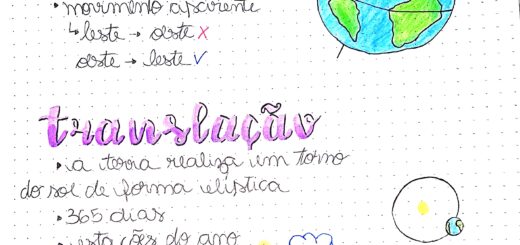 • movimento aparente
↳ leste → oeste x
oeste → leste ✓
translação
• a terra realiza um torno
do sol de forma elíptica
• 365 dias
• estações do ano